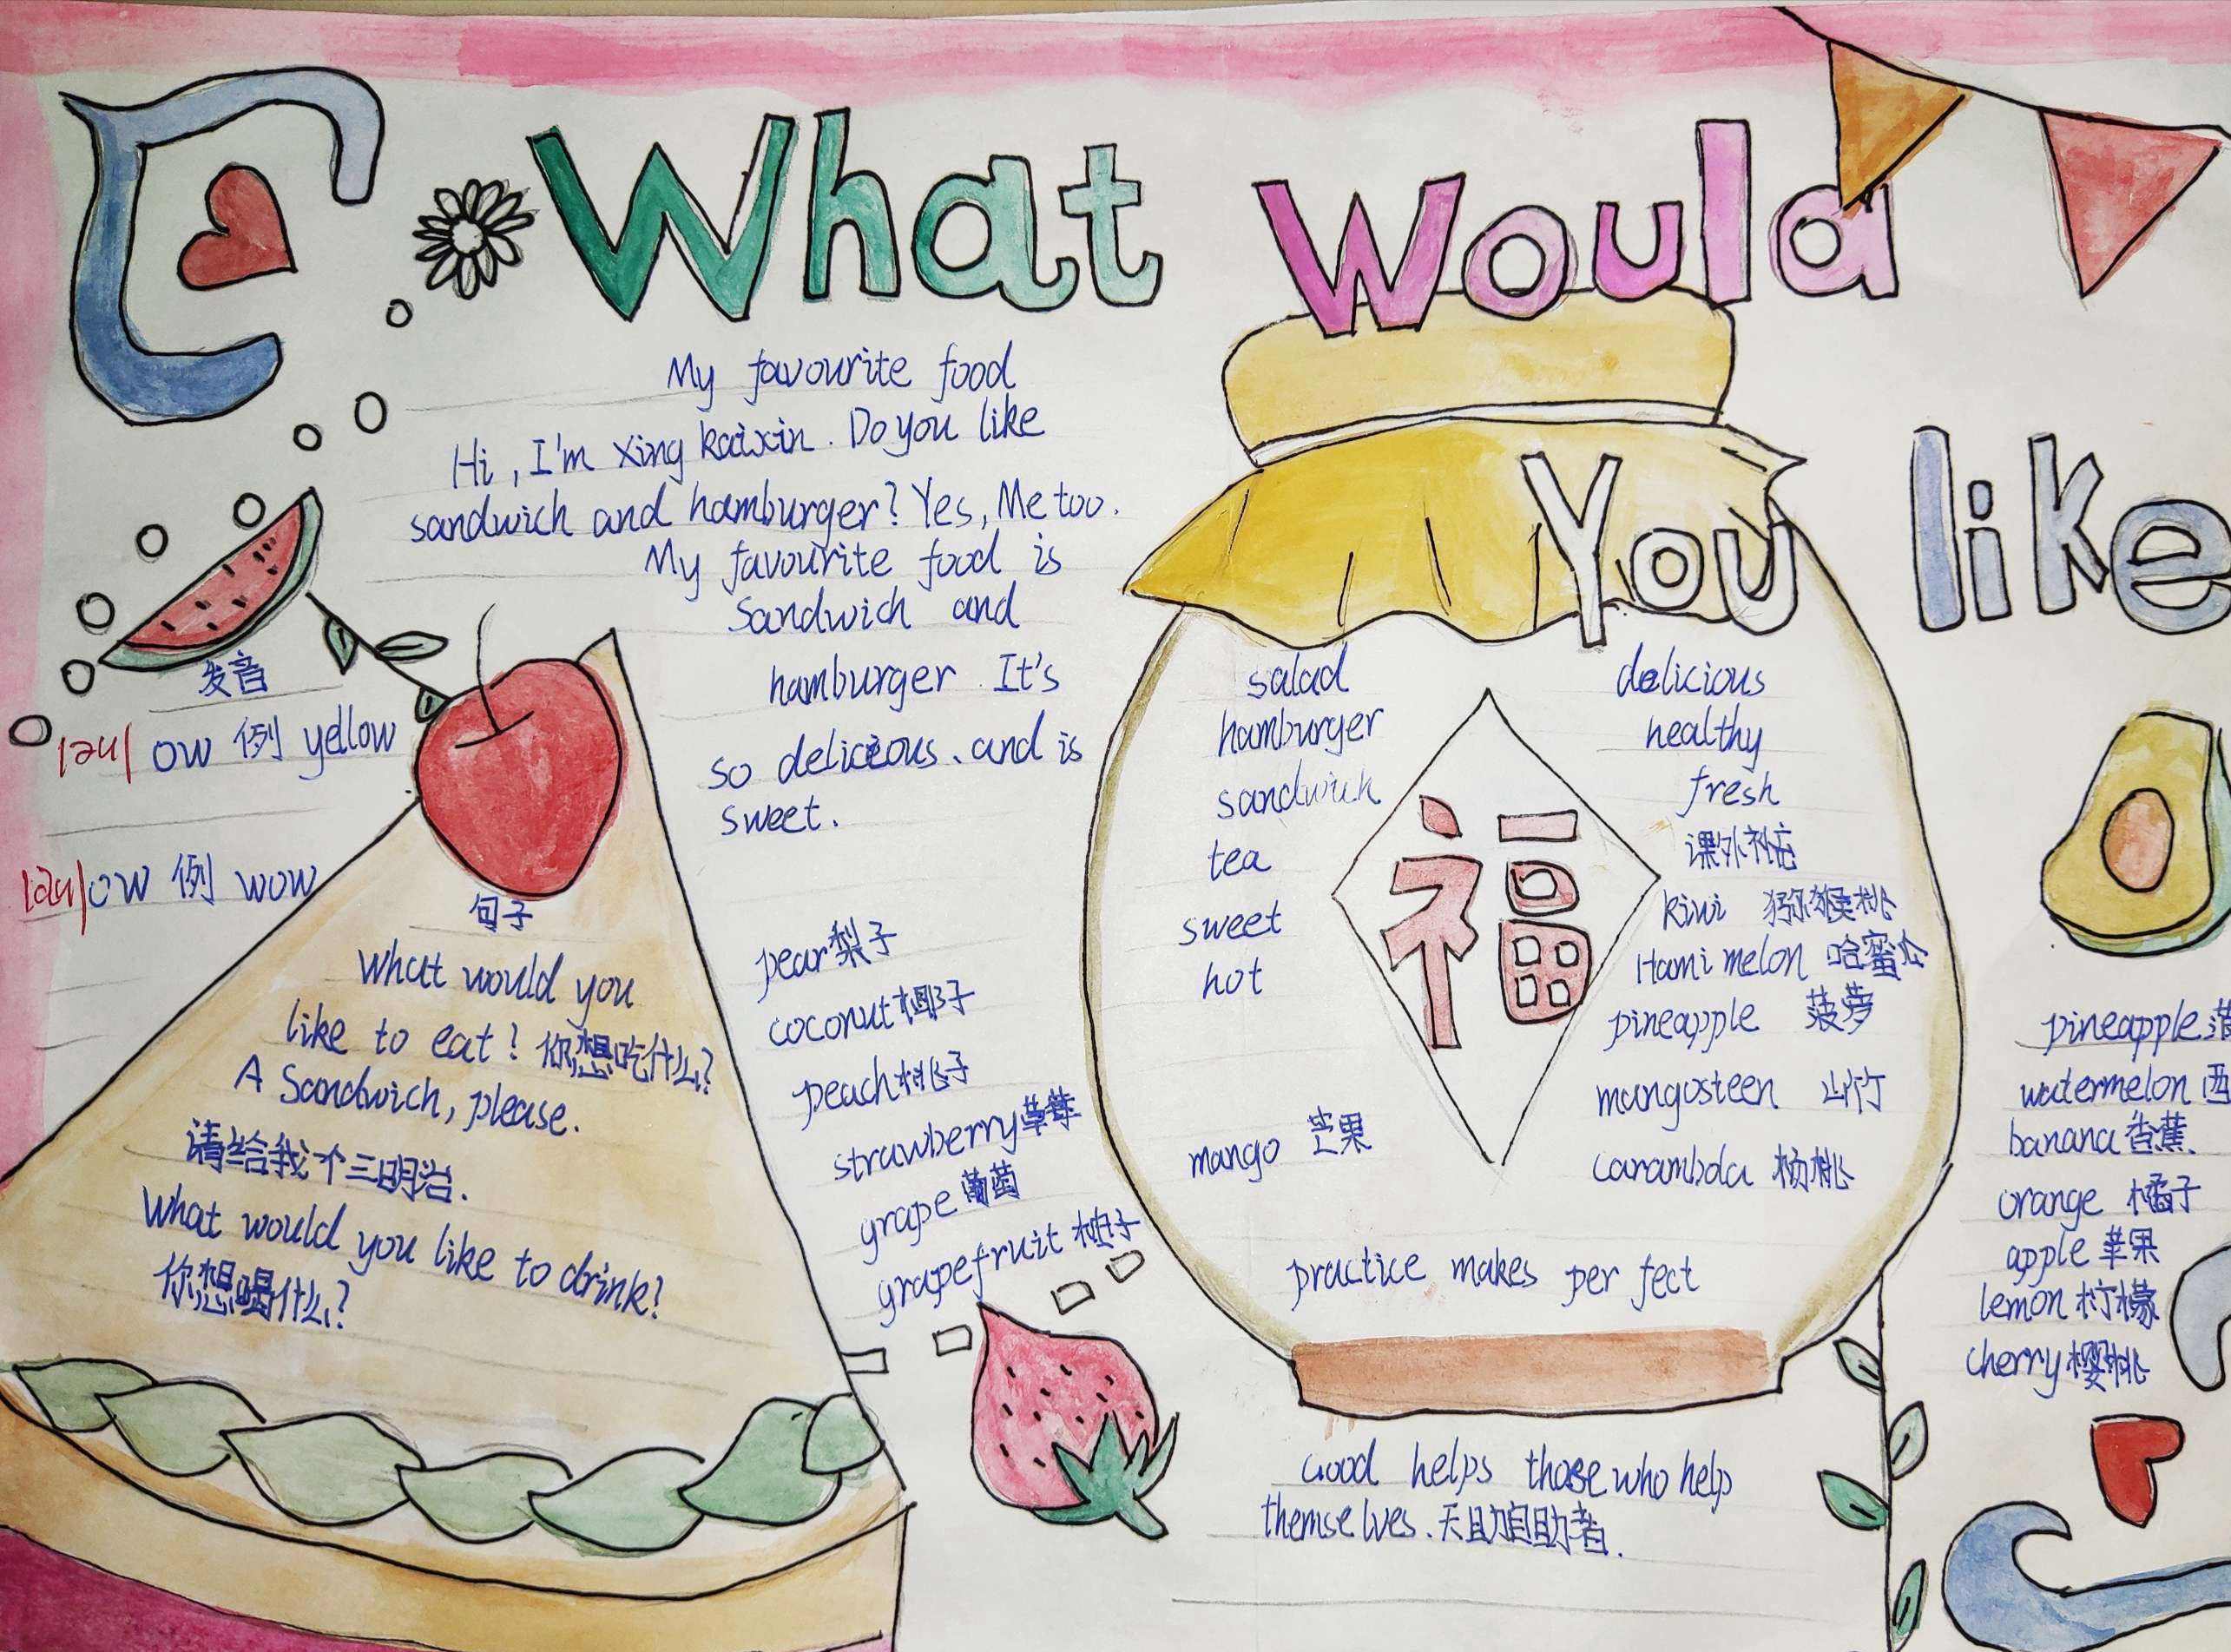 What Would
You like
My favourite food
Hi, I'm Xing kaixin. Do you like
sandwich and hamburger? Yes, Me too.
My favourite food is
Sandwich and
hamburger. It's
so delicious, and is
sweet.
发音
|əu| ow 例 yellow
|au| ow 例 wow
句子
What would you
like to eat? 你想吃什么?
A Sandwich, please.
请给我个三明治.
What would you like to drink?
你想喝什么?
pear 梨子
coconut 椰子
peach 桃子
strawberry 草莓
grape 葡萄
grapefruit 柚子
salad
hamburger
sandwich
tea
sweet
hot
mango 芒果
福
delicious
healthy
fresh
课外补充
kiwi 猕猴桃
Hami melon 哈蜜瓜
pineapple 菠萝
mangosteen 山竹
carambda 杨桃
practice makes per fect
Good helps those who help
themselves. 天助自助者.
pineapple 菠
watermelon 西
banana 香蕉.
orange 橘子
apple 苹果
lemon 柠檬
cherry 樱桃